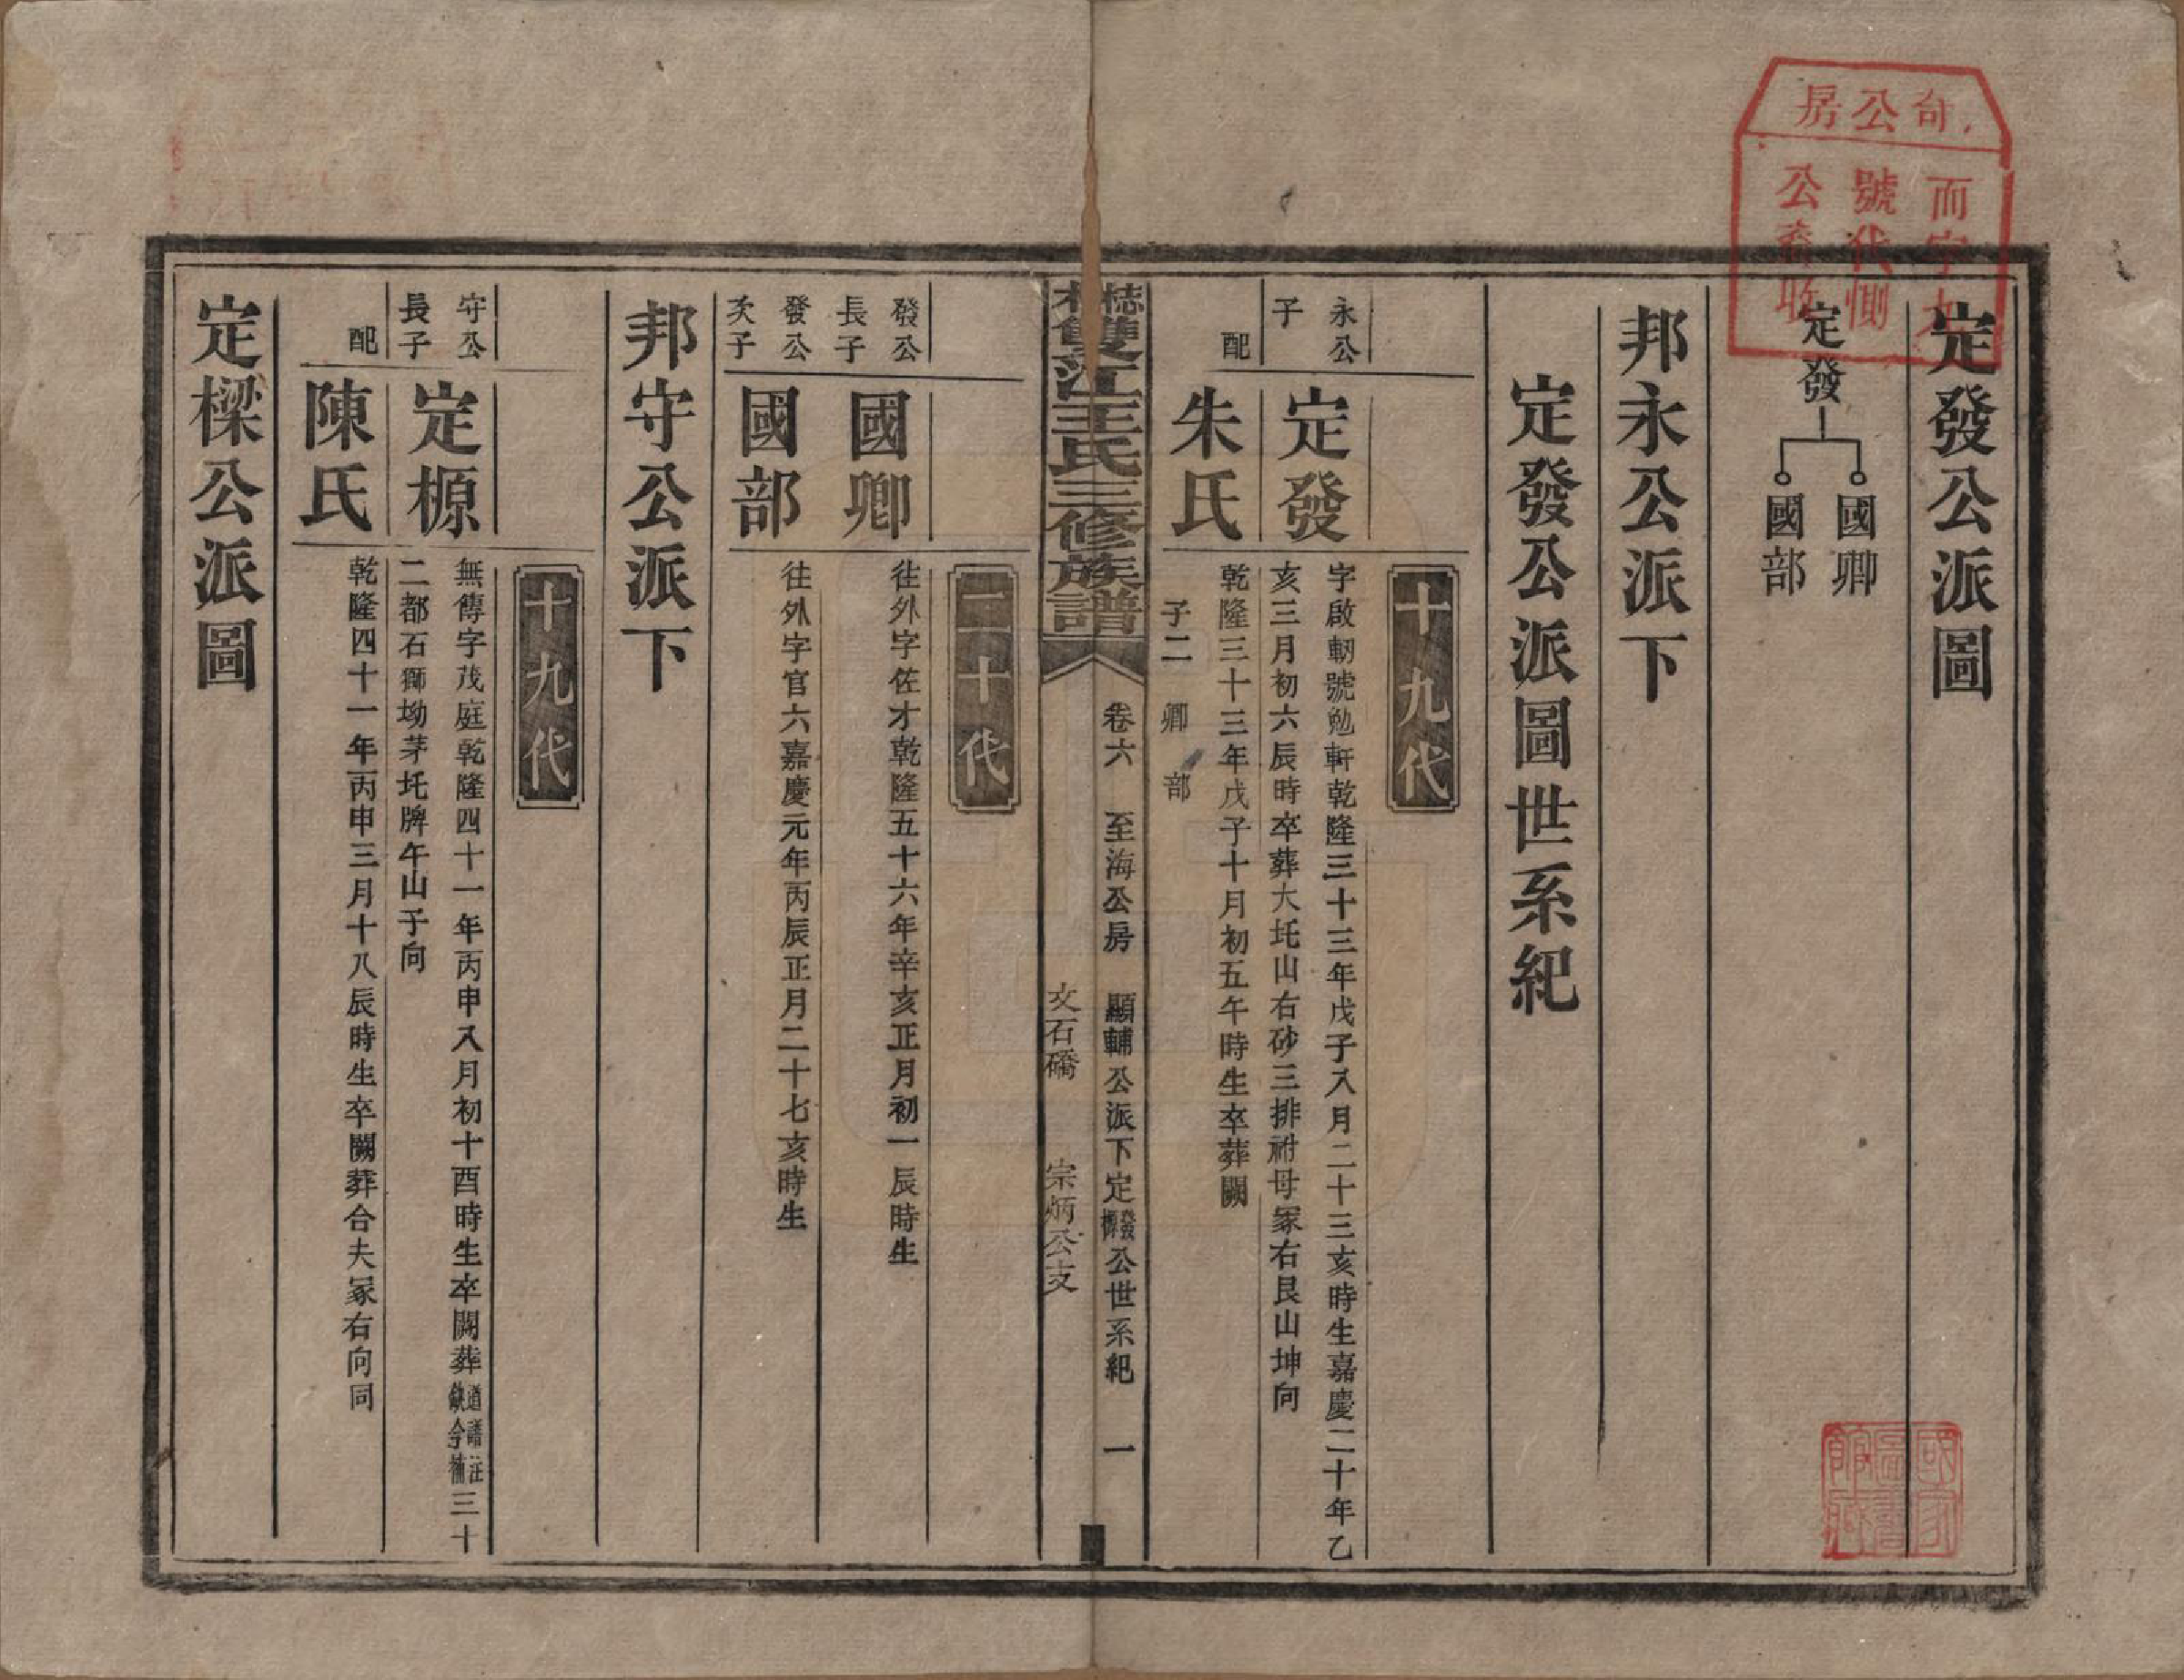 定發公派圖
定發
國卿
國部
邦永公派下
定發公派圖世系紀
十九代
永公子
定發
字啟軔號勉軒乾隆三十三年戊子八月二十三亥時生嘉慶二十年乙
亥三月初六辰時卒葬大圫山右砂三排祔母冢右艮山坤向
配
朱氏
乾隆三十三年戊子十月初五午時生卒葬闕
子二 卿 部
雙江王氏三修族譜
卷六 至海公房 顯輔公派下定發榞公世系紀 一
文石礄 宗炳公支
二十代
發公長子
國卿
往外字佐才乾隆五十六年辛亥正月初一辰時生
發公次子
國部
往外字官六嘉慶元年丙辰正月二十七亥時生
邦守公派下
十九代
守公長子
定榞
無傳字茂庭乾隆四十一年丙申八月初十酉時生卒闕葬道譜注缺今補三十
二都石獅坳茅圫牌午山子向
配
陳氏
乾隆四十一年丙申三月十八辰時生卒闕葬合夫冢右向同
定樑公派圖
公房
而字九
號代
公
國家圖書館藏